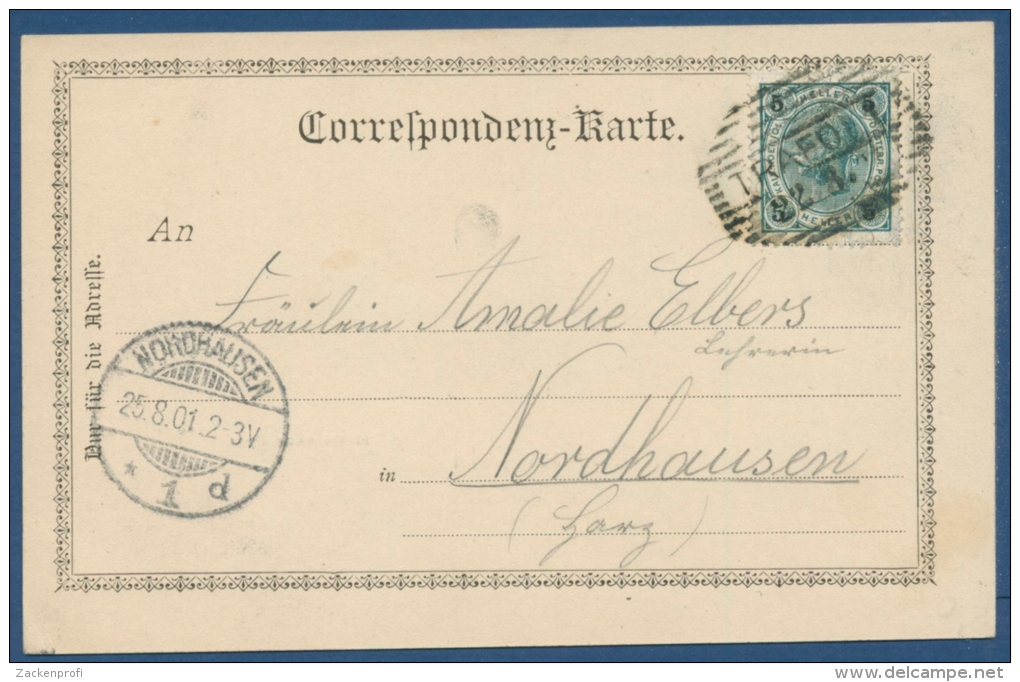 Correspondenz-Karte.
5 HELLER 5
KAIS. KÖN. ÖSTERR. POST
5 HELLER 5
TRAFOI
An
Nur für die Adresse.
Fräulein Amalie Elbers
Lehrerin
NORDHAUSEN
25.8.01.2-3V
* 1 d
in Nordhausen
(Harz)
Zackenprofi
delcampe.net